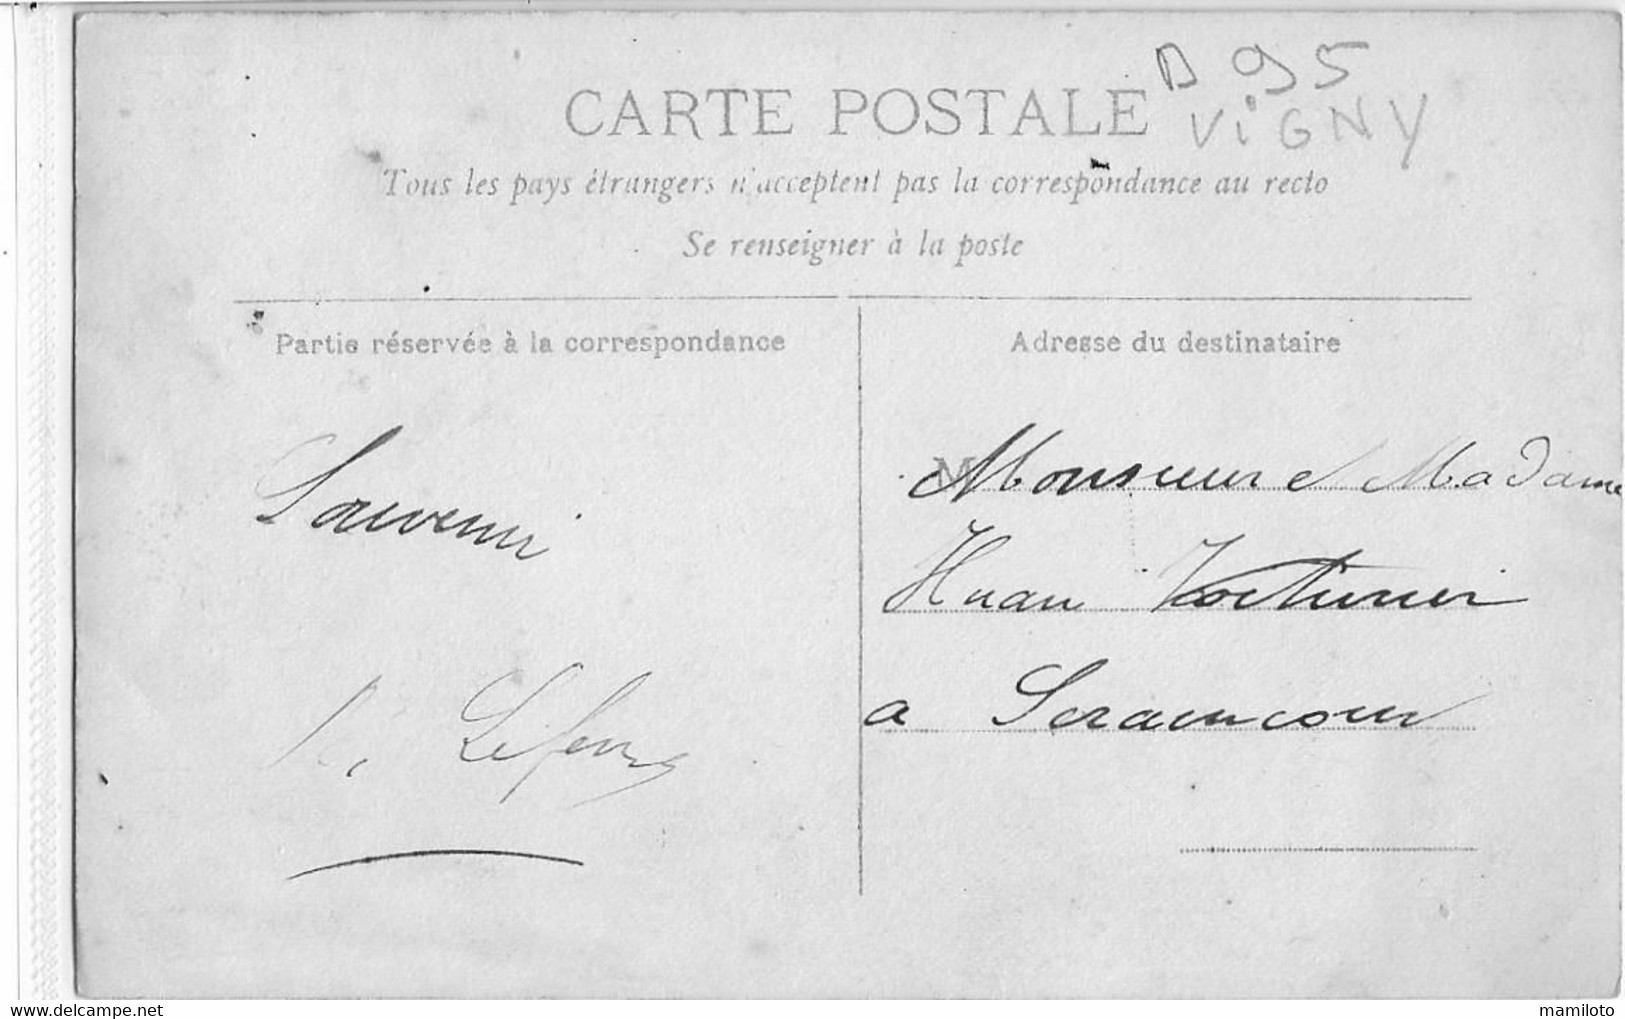 D 95
ViGNY
CARTE POSTALE
Tous les pays étrangers n'acceptent pas la correspondance au recto
Se renseigner à la poste
Partie réservée à la correspondance
Adresse du destinataire
Souvenir
Lefevre
Monsieur e Madame
a Seraincour
mamiloto